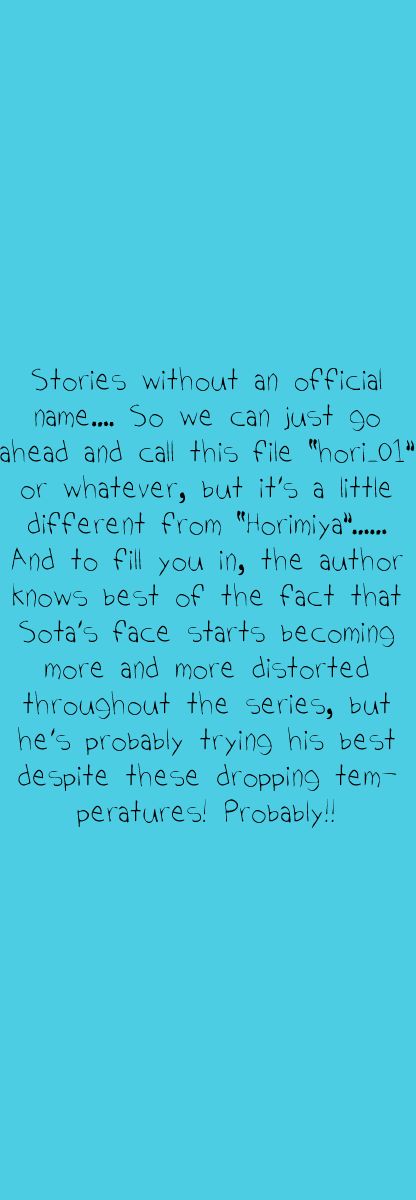 Stories without an official
name.... So we can just go
ahead and call this file "hori_01"
or whatever, but it's a little
different from "Horimiya"......
And to fill you in, the author
knows best of the fact that
Sota's face starts becoming
more and more distorted
throughout the series, but
he's probably trying his best
despite these dropping tem-
peratures! Probably!!